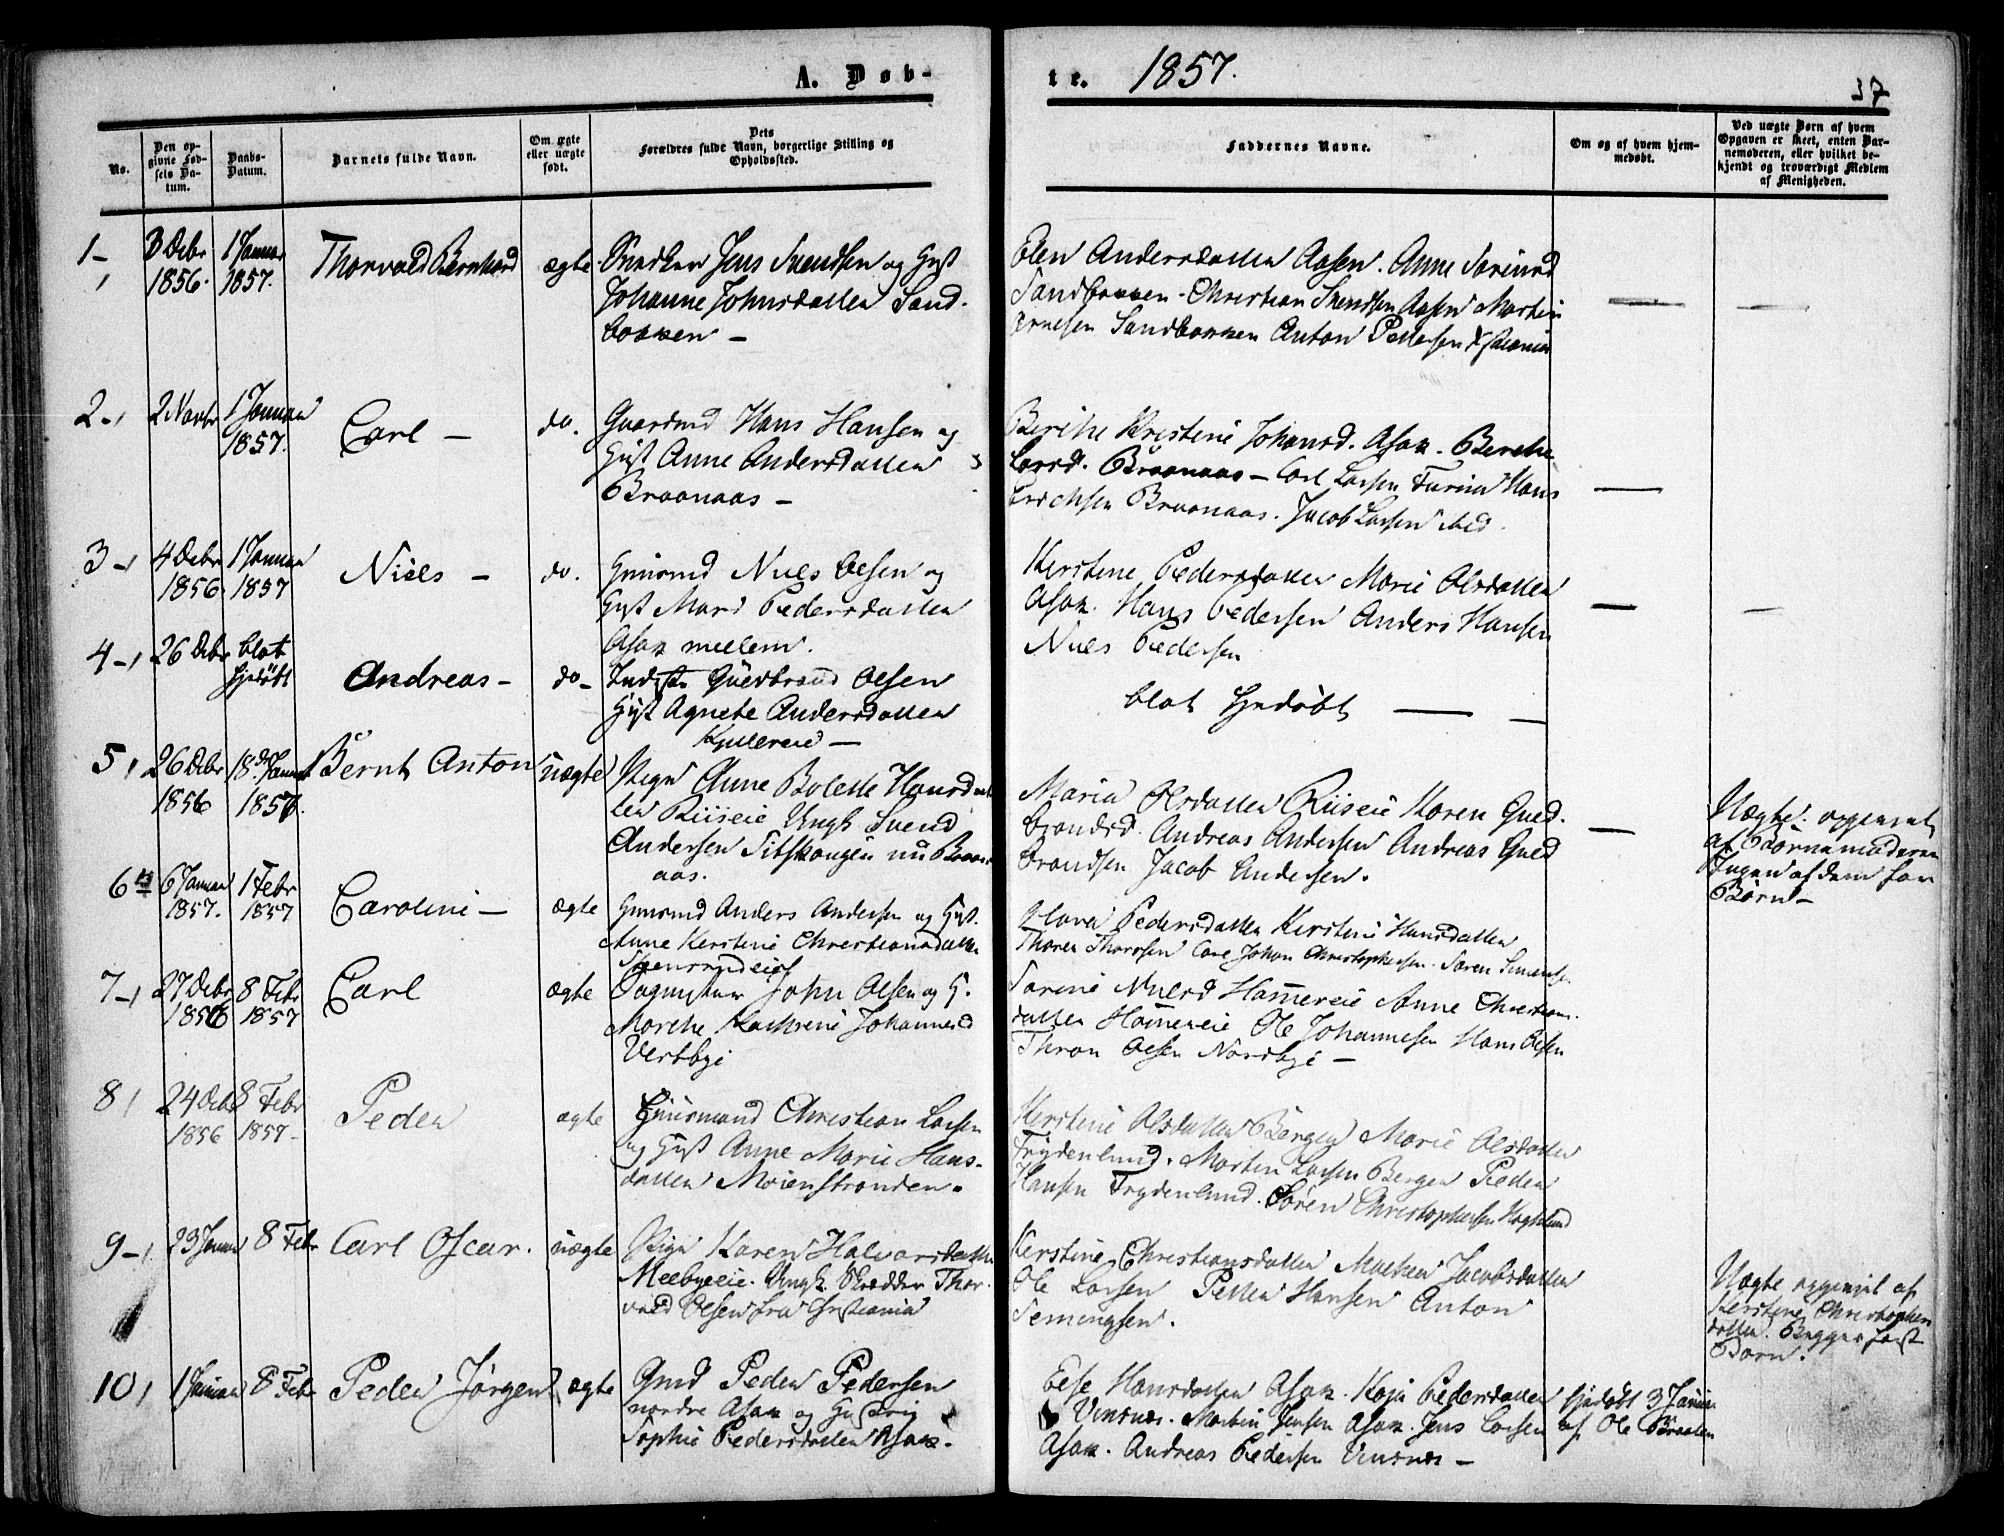 A. Døb-
t e. 1857.
37
No.
Den op-
givne Fød-
sels Da-
tum.
Daabs-
Datum.
Barnets fulde Navn.
Om ægte
eller uægte
født.
Dets
Forældres fulde Navn, borgerlige Stilling og
Opholdssted.
Faddernes Navne.
Om og af hvem hjem-
medøbt.
Ved uægte Børn af hvem
Opgaven er skeet, enten Bar-
nemoderen, eller hvilket be-
kjendt og troværdigt Medlem
af Menigheden.
1- 3 Decbr 1856. 1 Januar 1857. Thorvald Bernhard ægte. Jens Svendsen og Gust
Johanne Johnsdatter Sand-
bakken -
Elen Andersdatter Aasen. Anne
Sandbakken - Christian Svendsen Aasen Martin
Arnesen Sandbakken Anton Pettersen
2-, 2 Novbr 1 Januar 1857. Carl - do. Gaardmd Hans Hansen og
Gust Anne Andersdatter
Braanaas -
Berthe Kristine Johansd. Asak. Berthe
Larsd. Braanaas - Carl Larsen Hans
Erichsen Braanaas. Jacob Larsen
3-, 4 Decbr 1856 1 Januar 1857 Niels - do. Niels Olsen og
Gust Mari Pedersdatter
Asak mellem.
Kerstine Pedersdatter Marie Olsdatter
Asak. Hans Pedersen Anders Hansen
Niels Pedersen
4-, 26 Decbr blot hjdøbt Andreas - do- Indst Guldbrand Olsen
Gust Agnete Andersdatter
blot hjdøbt
5, 26 Decbr 1856 18 Januar 1857. Bernt Anton uægte Pige Anne Bolette Hansdat-
ter Riiseie Ungk Svend
Andersen nu Braan-
aas.
Maria Olsdatter Riiseie Karen Guld-
brandsd. Andreas Andersen Andreas Guld
brandsen Jacob Andersen.
Uægte. opgivet
af Barnemoderen
Ingen af dem før
Børn -
6 6 Januar 1857. 1 Febr 1857 Caroline - ægte Anders Andersen og Gust.
Anne Kerstine Christiansdatter
Pedersdatter Kerstine Hansdatter
Thorer Thoresen Carl Johan Christophersen. Søren Simensen
7-, 27 Decbr 1856 8 Febr 1857 Carl ægte John Olsen og G.
Marthe Kathrine Johannesd
Vestbye
Sørine Nielsd Hammereie Anne Christians-
datter Hammereie Ole Johannesen Hans Olsen
Thron Olsen Nordbye -
8, 24 Decb 1856 8 Febr 1857- Peder ægte Christian Larsen
og Gust Anne Marie Hans-
datter Moenstranden.
Kerstine Olsdatter Bergen Marie Olsdatter
Frydenlund. Martin Larsen Bergen Peder
Hansen Frydenlund. Søren Christophersen
9-, 23 Januar 8 Febr Carl Oscar. uægte Pige Karen Halvorsdatter
Ungk. Skrædder Thor-
vald Olsen fra Christiania
Kerstine Christiansdatter Maren Jacobsdatter
Ole Larsen Petter Hansen Anton
Semingsen.
Uægte opgivet af
Kerstine Christophers
datter. Begges først
Barn.
10, 1 Januar 8 Febr Peder Jørgen ægte Gmd Peder Pedersen
nordre Asak og Gust
Sophie Pedersdatter Asak.
Else Hansdatter Asak. Kaja Pedersdatter
Vensnes. Martin Jensen Asak. Jens Larsen
Asak. Andreas Pedersen Vensnes -
hjdøbt 3 Januar
af Ole Braaten